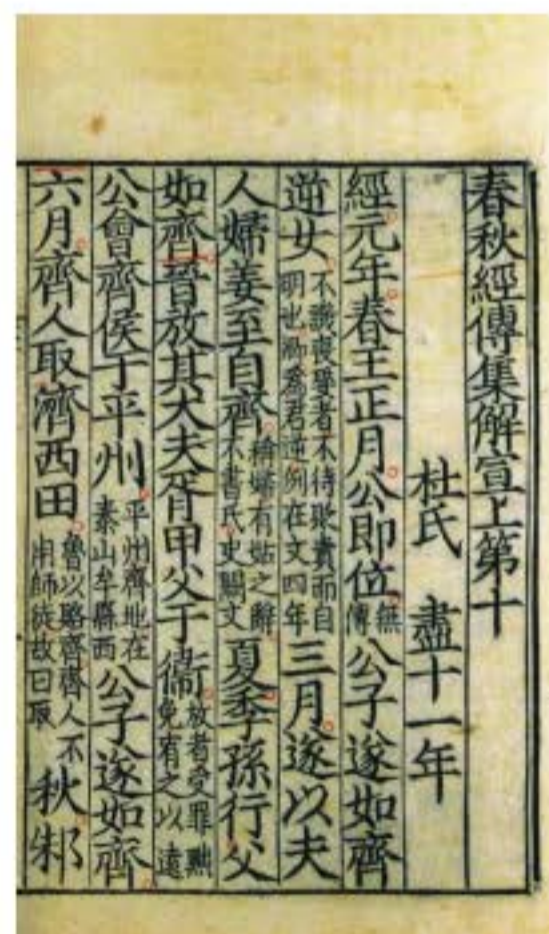 春秋經傳集解宣上第十
杜氏 盡十一年
經元年春王正月公即位無傳公子遂如齊
逆女不譏喪娶者不待貶責而自明也卿爲君逆例在文四年三月遂以夫
人婦姜至自齊稱婦有姑之辭不書氏史闕文夏季孫行父
如齊晉放其大夫胥甲父于衞放者受罪黜免宥之以遠
公會齊侯于平州平州齊地在泰山牟縣西公子遂如齊
六月齊人取濟西田魯以賂齊齊人不用師徒故曰取秋邾